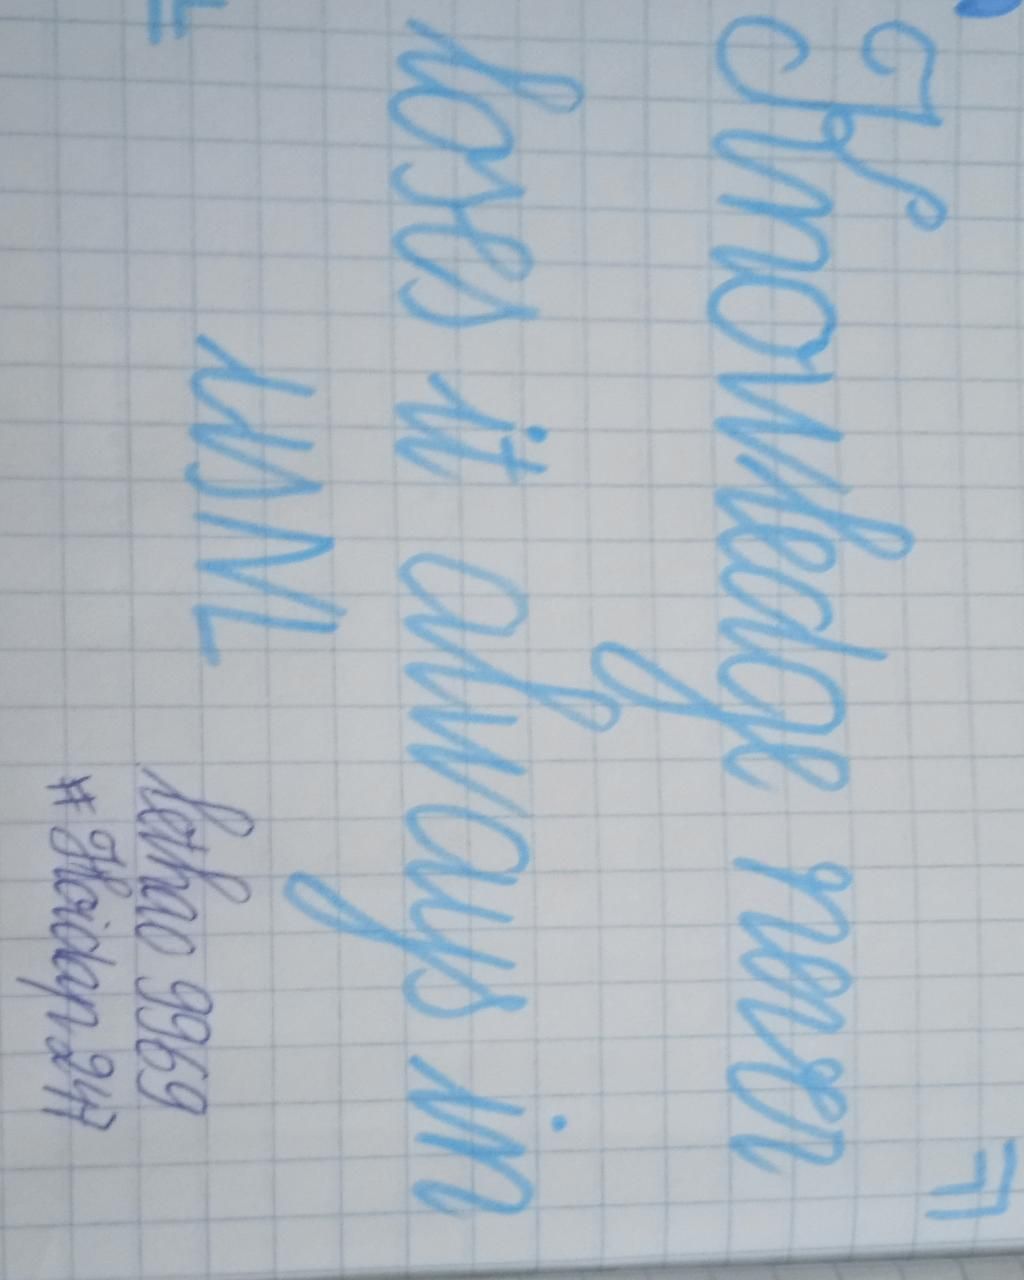 Knowledge never
loses it always in
us
lethao 9969
#Hoidap247